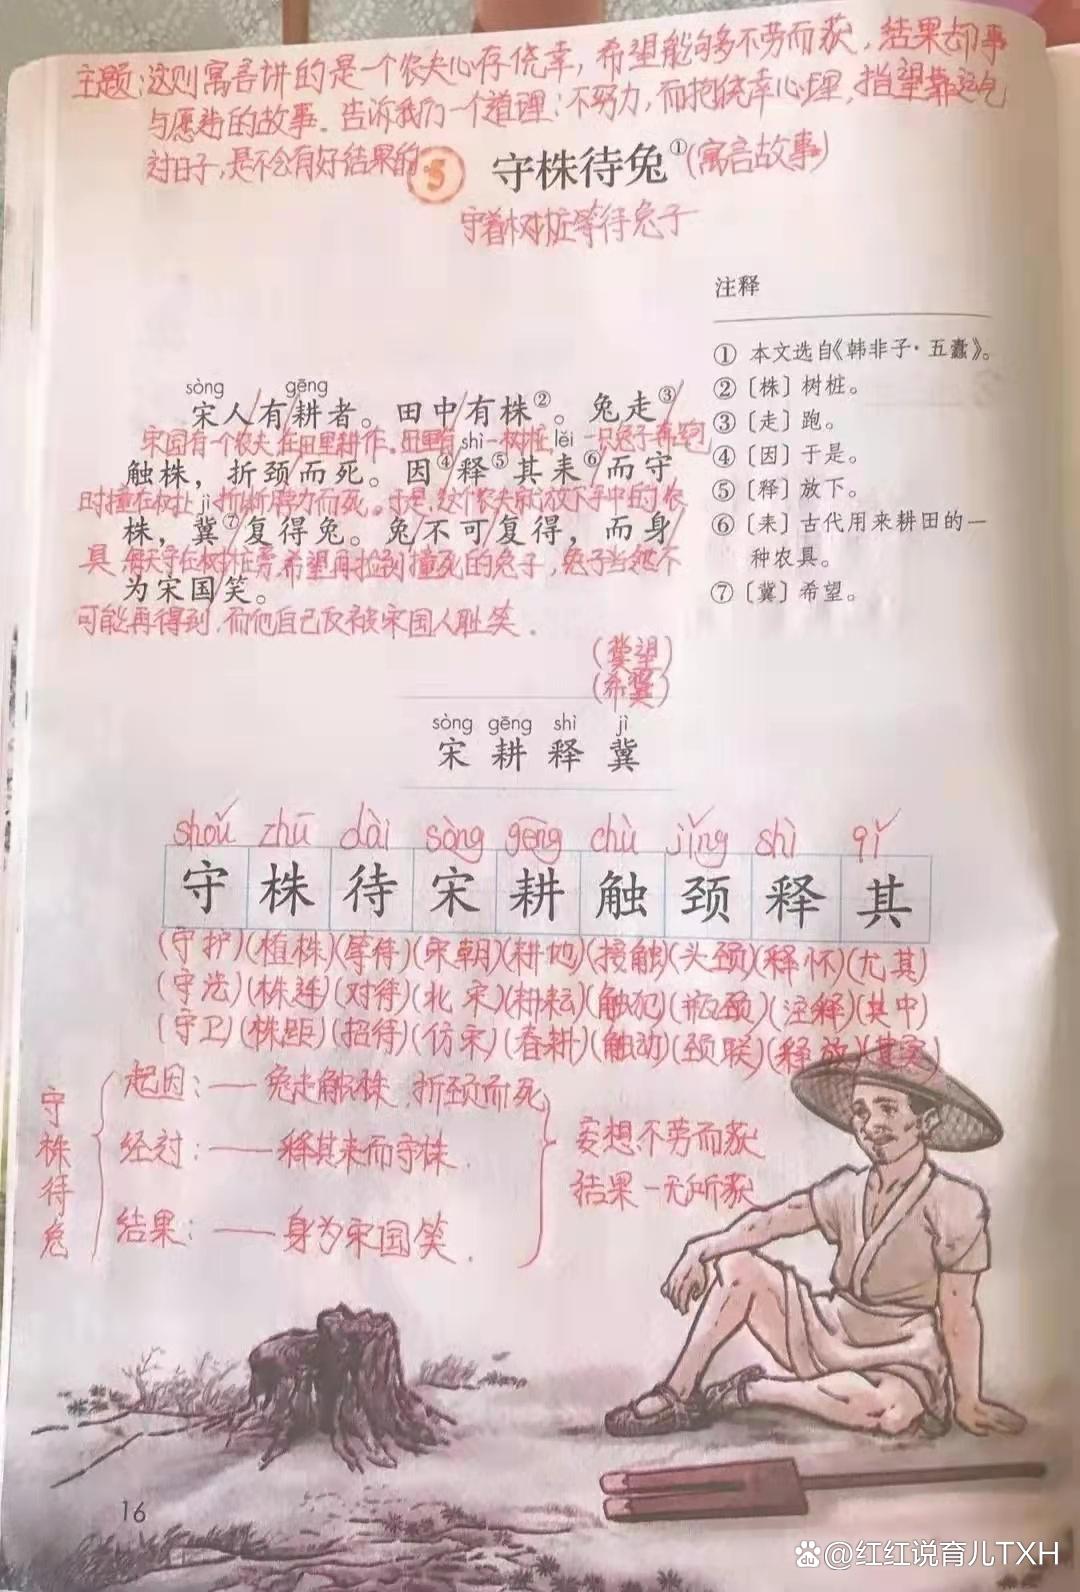 主题:这则寓言讲的是一个农夫心存侥幸,希望能够不劳而获,结果却事
与愿违的故事。告诉我们一个道理:不努力,而抱侥幸心理,指望靠运气
过日子,是不会有好结果的。
5 守株待兔①(寓言故事)
守着树桩等待兔子
注释
① 本文选自《韩非子·五蠹》。
② 〔株〕树桩。
③ 〔走〕跑。
④ 〔因〕于是。
⑤ 〔释〕放下。
⑥ 〔耒〕古代用来耕田的一
种农具。
⑦ 〔冀〕希望。
sòng gēng
宋人/有/耕者。田中/有株②。兔走③/
宋国有一个农夫在田里耕作。田里有一树桩,一只兔子奔跑
shì lěi
触株,折颈而死。因④/释⑤其耒⑥/而守
时撞在树桩 折断脖子而死。于是,这个农夫就放下手中的农
jì
株,冀⑦/复得兔。兔/不可复得,而身/
具 每天守在树桩旁,希望再捡到撞死的兔子,兔子当然不
为宋国笑。
可能再得到,而他自己反被宋国人耻笑.
(冀望)
(希冀)
sòng gēng shì jì
宋 耕 释 冀
shǒu zhū dài sòng gēng chù jǐng shì qí
守 株 待 宋 耕 触 颈 释 其
(守护)(植株)(等待)(宋朝)(耕地)(接触)(头颈)(释怀)(尤其)
(守法)(株连)(对待)(北宋)(耕耘)(触犯)(瓶颈)(注释)(其中)
(守卫)(株距)(招待)(仿宋)(春耕)(触动)(颈联)(释放)(其实)
守株待兔
起因:——兔走触株,折颈而死
经过:——释其耒而守株.
结果:——身为宋国笑.
妄想不劳而获
结果一无所获
16
@红红说育儿TXH